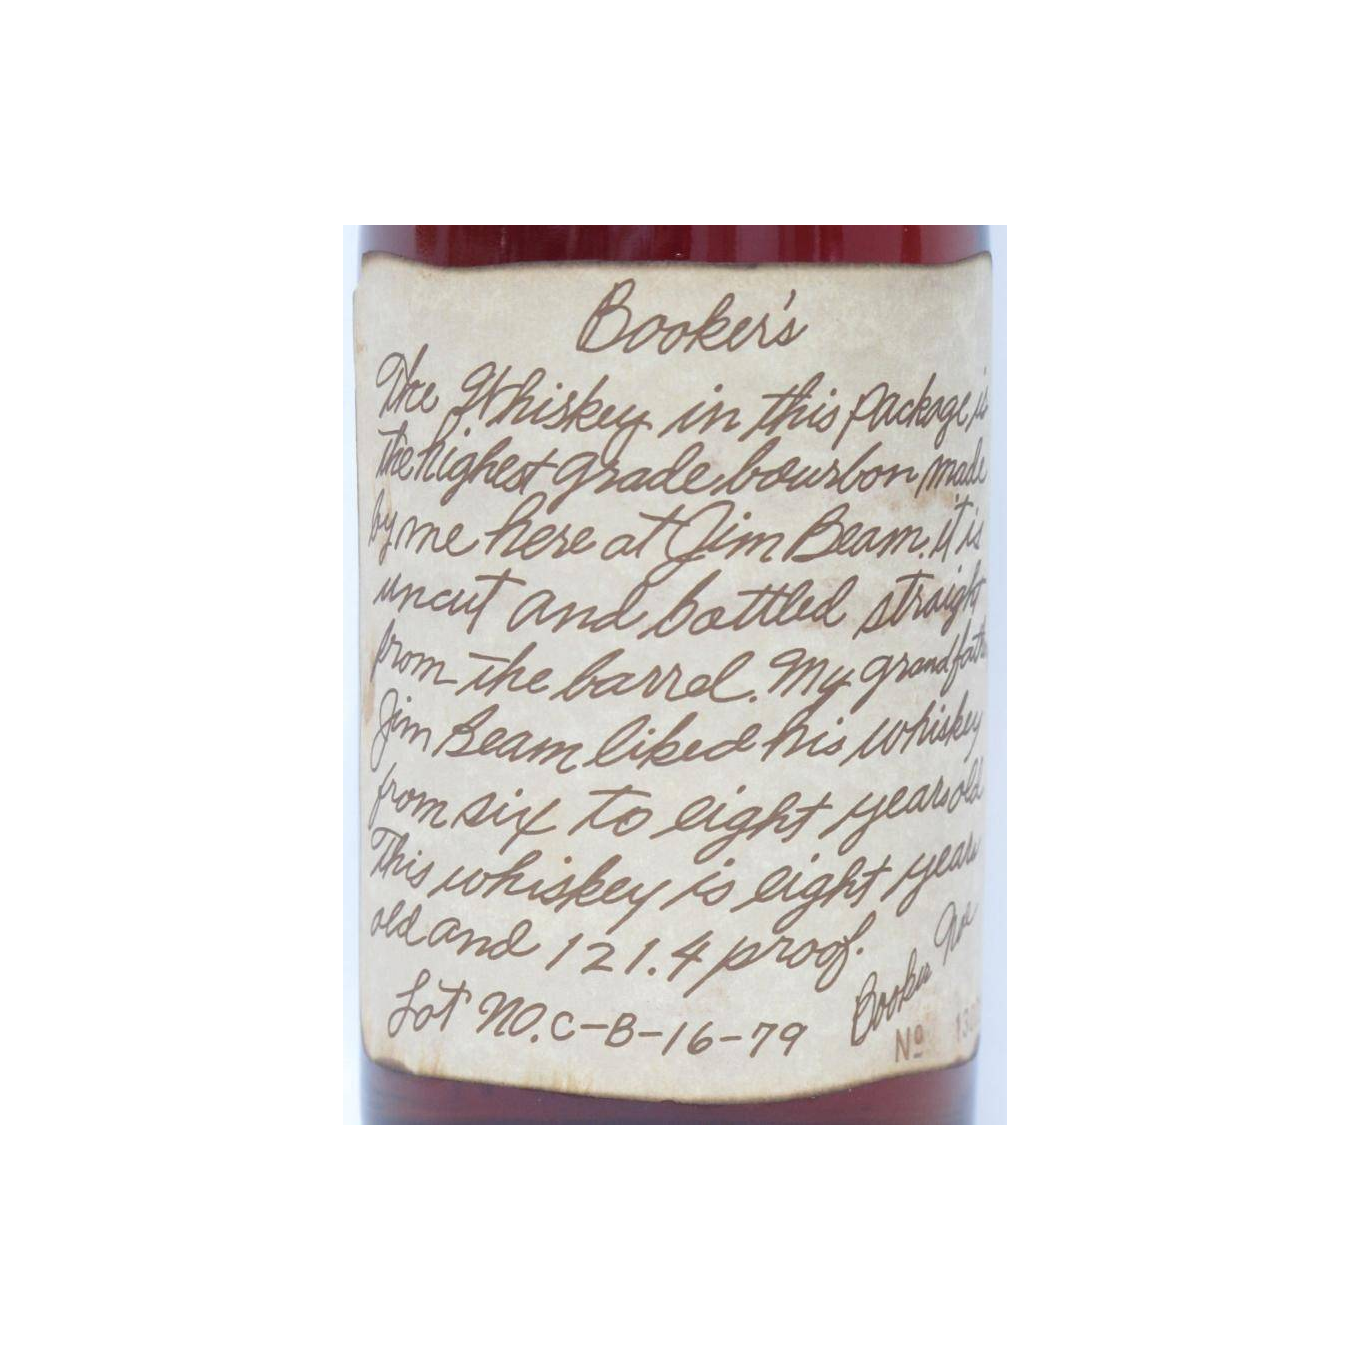 Booker's
The Whiskey in this package is
the highest grade bourbon made
by me here at Jim Beam. it is
uncut and bottled straight
from the barrel. My grandfath
Jim Beam liked his whiskey
from six to eight years old
This whiskey is eight years
old and 121.4 proof.
Booker Noe
Lot NO. C-B-16-79
Nº